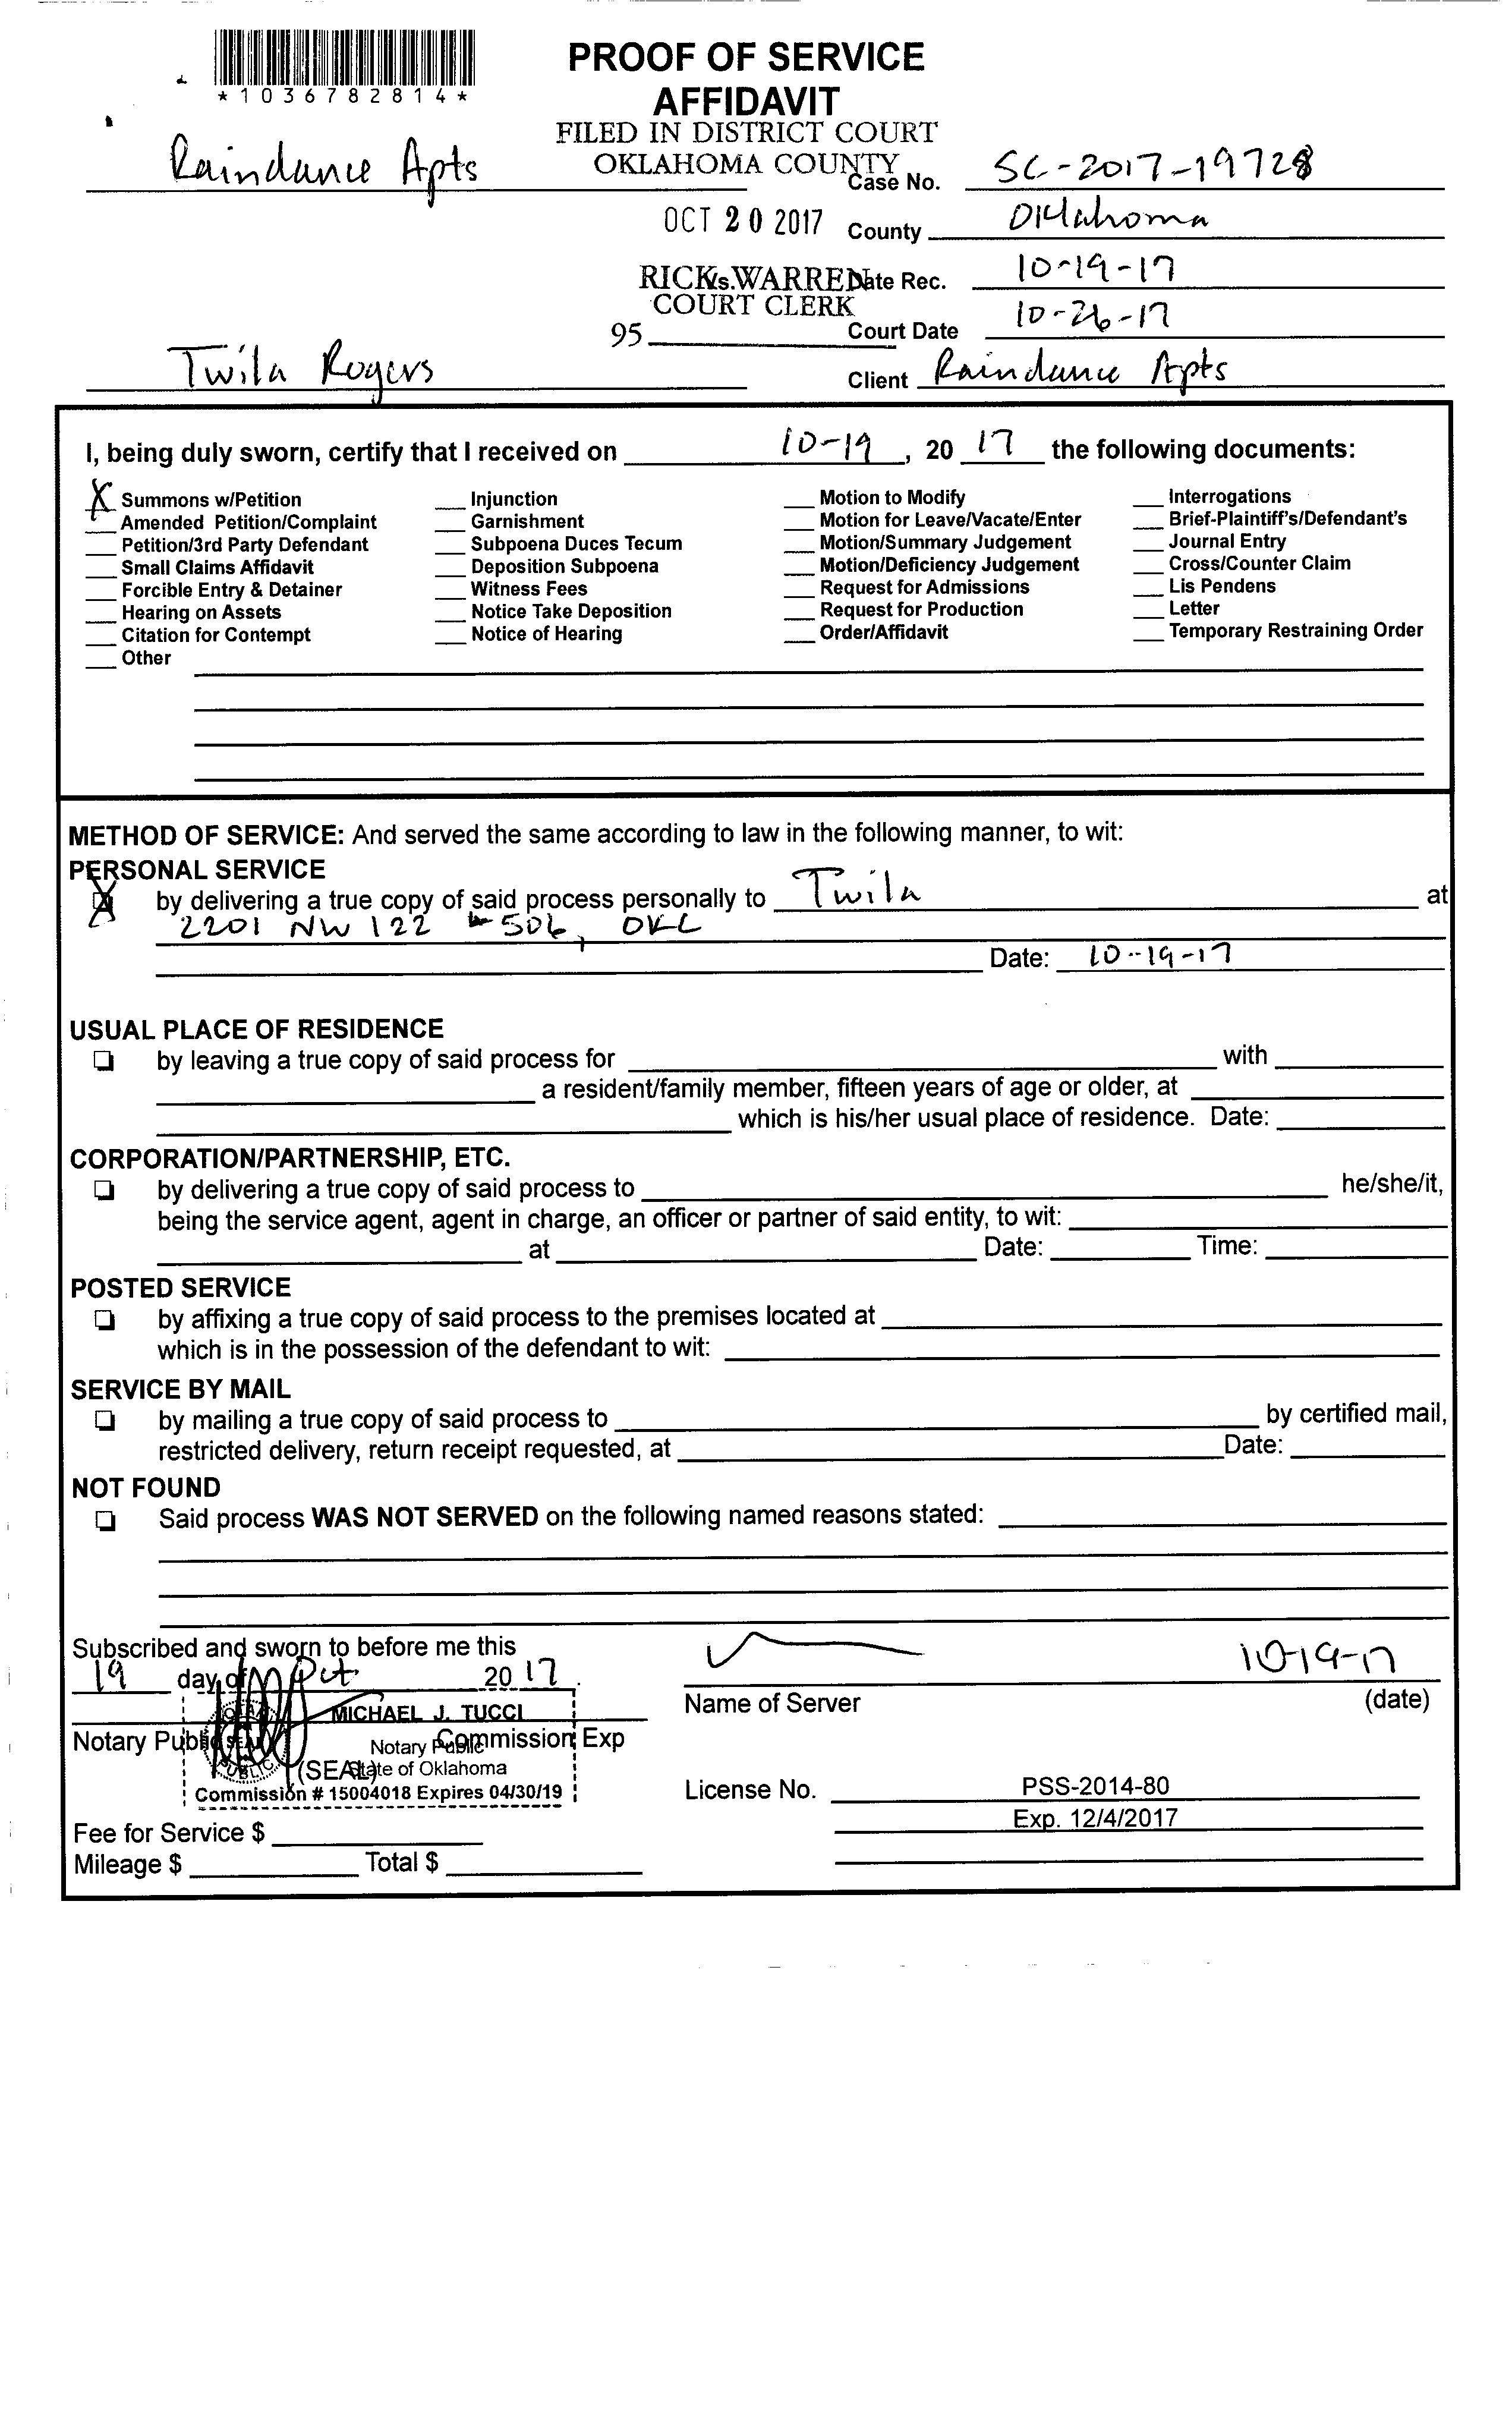 *1036782814*
PROOF OF SERVICE
AFFIDAVIT
FILED IN DISTRICT COURT
OKLAHOMA COUNTY
Raindance Apts
Case No. SC-2017-19728
OCT 20 2017
County Oklahoma
RICK WARREN
vs.
Date Rec. 10-19-17
COURT CLERK
95
Court Date 10-26-17
Twila Rogers
Client Raindance Apts
I, being duly sworn, certify that I received on 10-19, 20 17 the following documents:
X Summons w/Petition
Amended Petition/Complaint
Petition/3rd Party Defendant
Small Claims Affidavit
Forcible Entry & Detainer
Hearing on Assets
Citation for Contempt
Other
Injunction
Garnishment
Subpoena Duces Tecum
Deposition Subpoena
Witness Fees
Notice Take Deposition
Notice of Hearing
Motion to Modify
Motion for Leave/Vacate/Enter
Motion/Summary Judgement
Motion/Deficiency Judgement
Request for Admissions
Request for Production
Order/Affidavit
Interrogations
Brief-Plaintiff's/Defendant's
Journal Entry
Cross/Counter Claim
Lis Pendens
Letter
Temporary Restraining Order
METHOD OF SERVICE: And served the same according to law in the following manner, to wit:
PERSONAL SERVICE
X by delivering a true copy of said process personally to Twila at
2201 NW 122 #506, OKC
Date: 10-19-17
USUAL PLACE OF RESIDENCE
by leaving a true copy of said process for with
a resident/family member, fifteen years of age or older, at
which is his/her usual place of residence. Date:
CORPORATION/PARTNERSHIP, ETC.
by delivering a true copy of said process to he/she/it,
being the service agent, agent in charge, an officer or partner of said entity, to wit:
at Date: Time:
POSTED SERVICE
by affixing a true copy of said process to the premises located at
which is in the possession of the defendant to wit:
SERVICE BY MAIL
by mailing a true copy of said process to by certified mail,
restricted delivery, return receipt requested, at Date:
NOT FOUND
Said process WAS NOT SERVED on the following named reasons stated:
Subscribed and sworn to before me this
19 day of Oct 20 17.
10-19-17
Name of Server (date)
MICHAEL J. TUCCI
Notary Public Commission Exp
Notary Public
(SEAL)
State of Oklahoma
Commission # 15004018 Expires 04/30/19
License No. PSS-2014-80
Exp. 12/4/2017
Fee for Service $
Mileage $ Total $